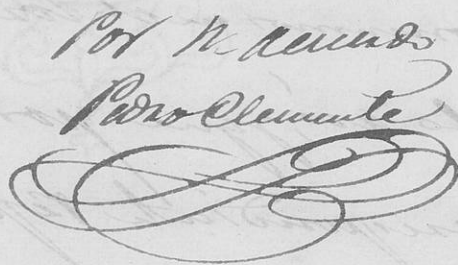 Por m acuerdo
Pedro Clemente